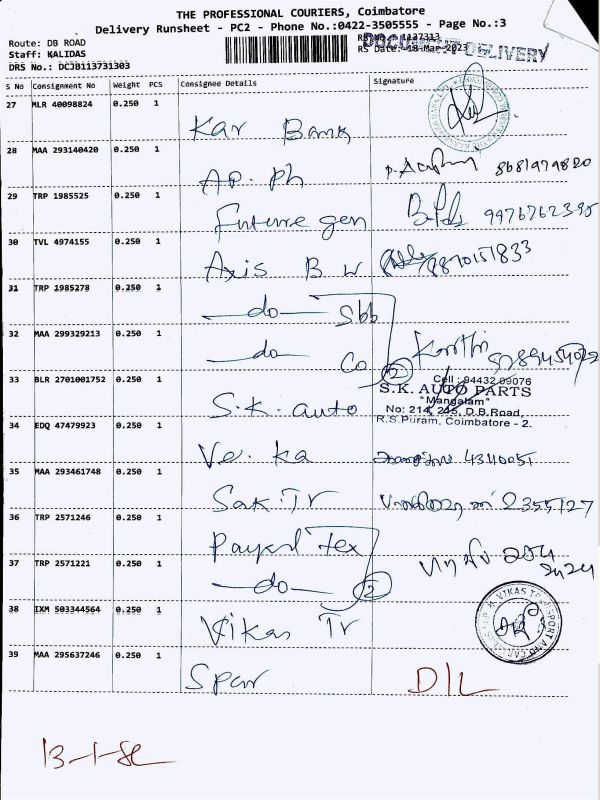 THE PROFESSIONAL COURIERS, Coimbatore
Delivery Runsheet - PC2 - Phone No.:0422-3505555 - Page No.:3
Route: DB ROAD
Staff: KALIDAS
DRS No.: DCJB113731303
RS Date: 18-Mar-2023
DOCUMENT DELIVERY
S No Consignment No Weight PCS Consignee Details Signature
27 MLR 40098824 0.250 1 Kar Bank
28 MAA 293140420 0.250 1 AP. Ph 8681979820
29 TRP 1985525 0.250 1 Future gen 9976762395
30 TVL 4974155 0.250 1 Axis B W 8870151833
31 TRP 1985278 0.250 1 —do— Sbb
32 MAA 299329213 0.250 1 —do— Co 2 Karthi
33 BLR 2701001752 0.250 1 S.K. auto
Cell : 94432 09076
S.K. AUTO PARTS
"Mangalam"
No: 214, 215, D.B.Road,
R.S.Puram, Coimbatore - 2.
34 EDQ 47479923 0.250 1 Ve. ka 43110051
35 MAA 293461748 0.250 1 Sak. Tr 2355127
36 TRP 2571246 0.250 1 Payal Tex
37 TRP 2571221 0.250 1 —do— 2
38 IXM 503344564 0.250 1 Vikas Tr
VIKAS TRANSPORT AND
39 MAA 295637246 0.250 1 Spar D/L